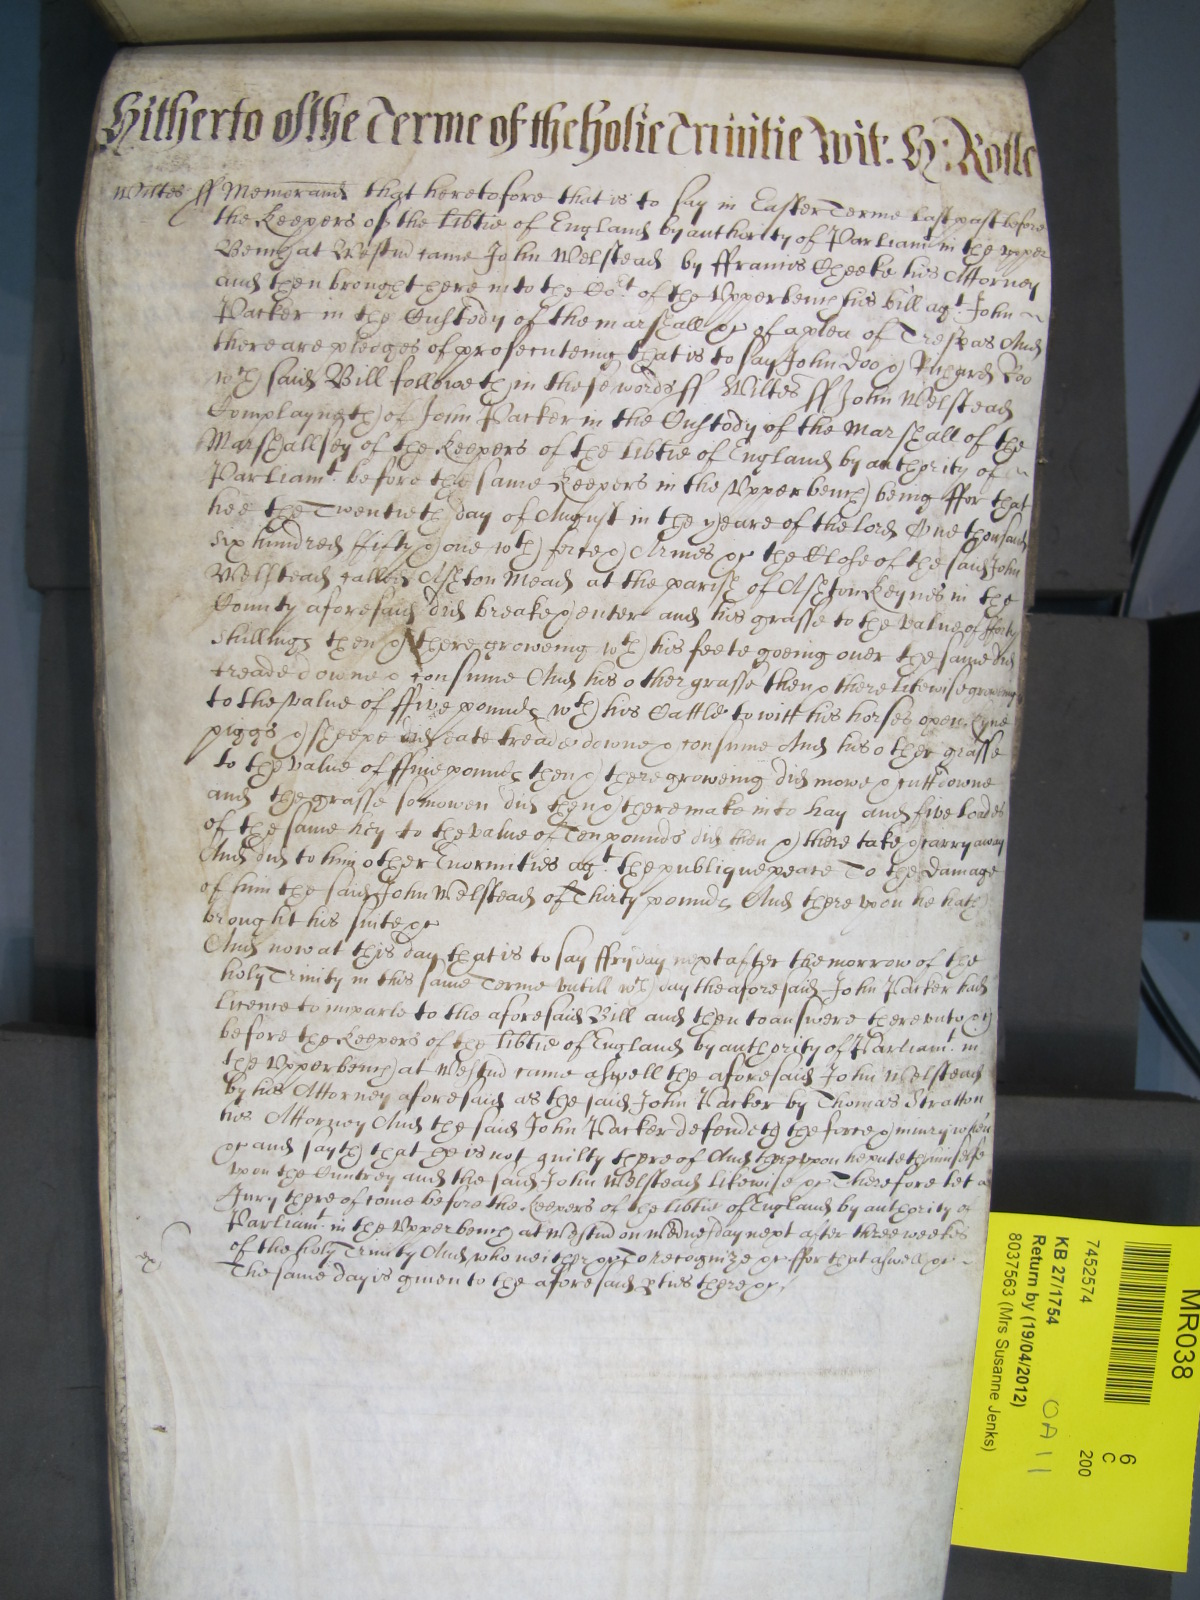 Hitherto of the Terme of the holie Trinitie Wit: H: Rolle
Wiltes ff Memorand that heretofore that is to say in Easter Terme last past before
the Keepers of the libtie of England by authority of Parliamt in the upper
Bench at Westmr came John Welstead by ffrancis Cheeke his Attorney
and then brought here into the Cot of the Upperbench his bill agt John
Packer in the Custody of the marshall &c of a plea of Trespas And
there are pledges of prosecuteing that is to say John Doo & Richard Roo
wch said Bill followeth in these words ff Wiltes ff John Welstead
Complayneth of John Packer in the Custody of the Marshall of the
Marshallsey of the Keepers of the libtie of England by authority of
Parliamt before the same Keepers in the Upperbench being ffor that
hee the Twentieth day of August in the yeare of the lord One thousand
six hundred ffifty & one wth force & Armes &c the Close of the said John
Welstead called Ashton Mead at the parish of Ashton Keynes in the
County aforesaid did breake & enter and his grasse to the value of fforty
shillings then & there groweing wth his feete goeing over the same did
treade downe & consume And his other grasse then & there likewise groweing
to the value of ffive pounds wth his Cattle to witt his horses open kyne
piggs & sheepe did eate treade downe & consume And his other grasse
to the value of ffive pounds then & there groweing did mowe & cutt downe
and the grasse so mowen did then & there make into hay and five loades
of the same hey to the value of Ten pounds did then & there take & carry away
And did to him other Enormities agt the publique peace To the Damage
of him the said John Welstead of Thirty pounds And there upon he hath
brought his suite &c
And now at this day that is to say ffryday next after the morrow of the
holy Trinity in this same Terme untill wch day the aforesaid John Packer had
licence to imparle to the aforesaid Bill and then to answere thereunto &c
before the Keepers of the libtie of England by authority of Parliamt in
the Upperbench at Westmr came aswell the aforesaid John Welstead
by his Attorney aforesaid as the said John Packer by Thomas Stratton
his Attorney And the said John Packer defendeth the force & iniury when
&c and sayth that he is not guilty thereof And thereupon he puteth himselfe
upon the Cuntrey and the said John Welstead likewise &c Therefore let a
Jury thereof come before the Keepers of the libtie of England by authority of
Parliamt in the Upperbench at Westmr on Wednesday next after three weekes
of the holy Trinity And who neither &c To recognize &c ffor that aswell &c
The same day is given to the aforesaid pties there &c
MR038
6
C
200
7452574
KB 27/1754
OA 11
Return by (19/04/2012)
8037563 (Mrs Susanne Jenks)